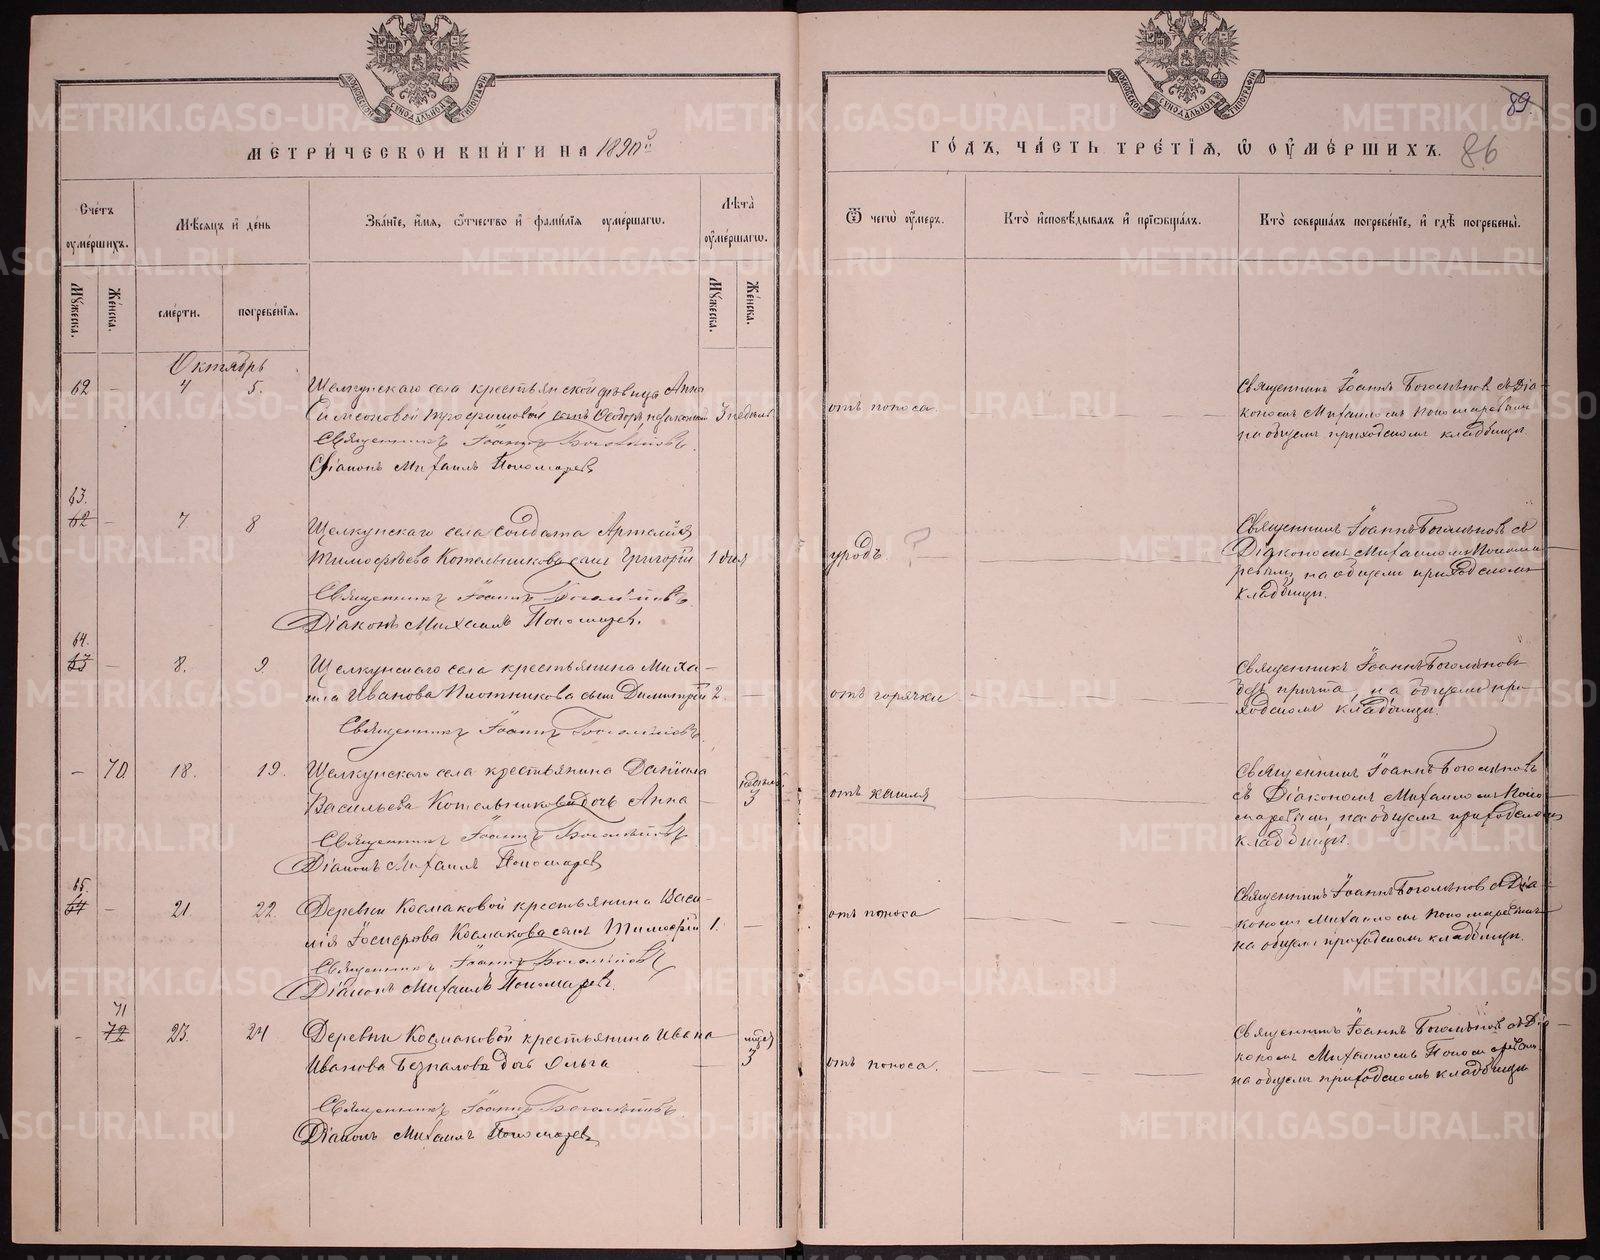 МЕТРИ́ЧЕСКОЙ КНИ́ГИ НА 1890й
Счетъ оумершихъ.
Мѣсяцъ и день
Званїе, имя, отчество и фамилїя оумершагw.
Лѣта оумершагw.
Мужеска.
Женска.
смерти.
погребенїя.
Мужеска.
Женска.
Октябрь
62 - 4 5. Щелкунскаго села крестьянской дѣвицы Анны
Симеоновой Трофимовой сынъ Ѳеодоръ, незаконный 3 недѣли
Священникъ Іоаннъ Боголѣповъ.
Діаконъ Михаилъ Пономаревъ
63.
62 - 7 8 Щелкунскаго села солдата Артемія
Тимоѳеева Котельникова сынъ Григорій 1 дня
Священникъ Іоаннъ Боголѣповъ.
Діаконъ Михаилъ Пономаревъ.
64.
63 - 8. 9. Щелкунскаго села крестьянина Миха-
ила Иванова Плотникова сынъ Димитрій 2. -
Священникъ Іоаннъ Боголѣповъ.
- 70. 18. 19. Щелкунскаго села крестьянина Даніила
Васильева Котельникова дочь Анна - недѣль 3
Священникъ Іоаннъ Боголѣповъ
Діаконъ Михаилъ Пономаревъ
65.
64 - 21. 22. Деревни Космаковой крестьянина Васи-
лія Космакова сынъ Тимоѳей 1. -
Священникъ Іоаннъ Боголѣповъ
Діаконъ Михаилъ Пономаревъ.
71
- 72 23. 24 Деревни Космаковой крестьянина Ивана
Иванова дочь Ольга - 3
Священникъ Іоаннъ Боголѣповъ.
Діаконъ Михаилъ Пономаревъ
89.
ГО́ДЪ, ЧА́СТЬ ТРЕ́ТЇЯ, Ѽ ОУМЕ́РШИХЪ. 86
Ѿ чегw оумеръ.
Кто исповѣдывалъ и прїобщалъ.
Кто совершалъ погребенїе, и гдѣ погребены.
отъ поноса.
Священникъ Іоаннъ Боголѣповъ съ Діа-
кономъ Михаиломъ Пономаревымъ
на общемъ приходскомъ кладбищѣ
уродъ. ?
Священникъ Іоаннъ Боголѣповъ съ
Діакономъ Михаиломъ Понома-
ревымъ, на общемъ приходскомъ
кладбищѣ.
отъ горячки
Священникъ Іоаннъ Боголѣповъ
безъ причта, на общемъ при-
ходскомъ кладбищѣ.
отъ кашля
Священникъ Іоаннъ Боголѣповъ
съ Діакономъ Михаиломъ Поно-
маревымъ, на общемъ приходскомъ
кладбищѣ.
отъ поноса
Священникъ Іоаннъ Боголѣповъ съ Діа-
кономъ Михаиломъ Пономаревымъ
на общемъ приходскомъ кладбищѣ.
отъ поноса.
Священникъ Іоаннъ Боголѣповъ съ Діа-
кономъ Михаиломъ Пономаревымъ
на общемъ приходскомъ кладбищѣ
METRIKI.GASO-URAL.RU